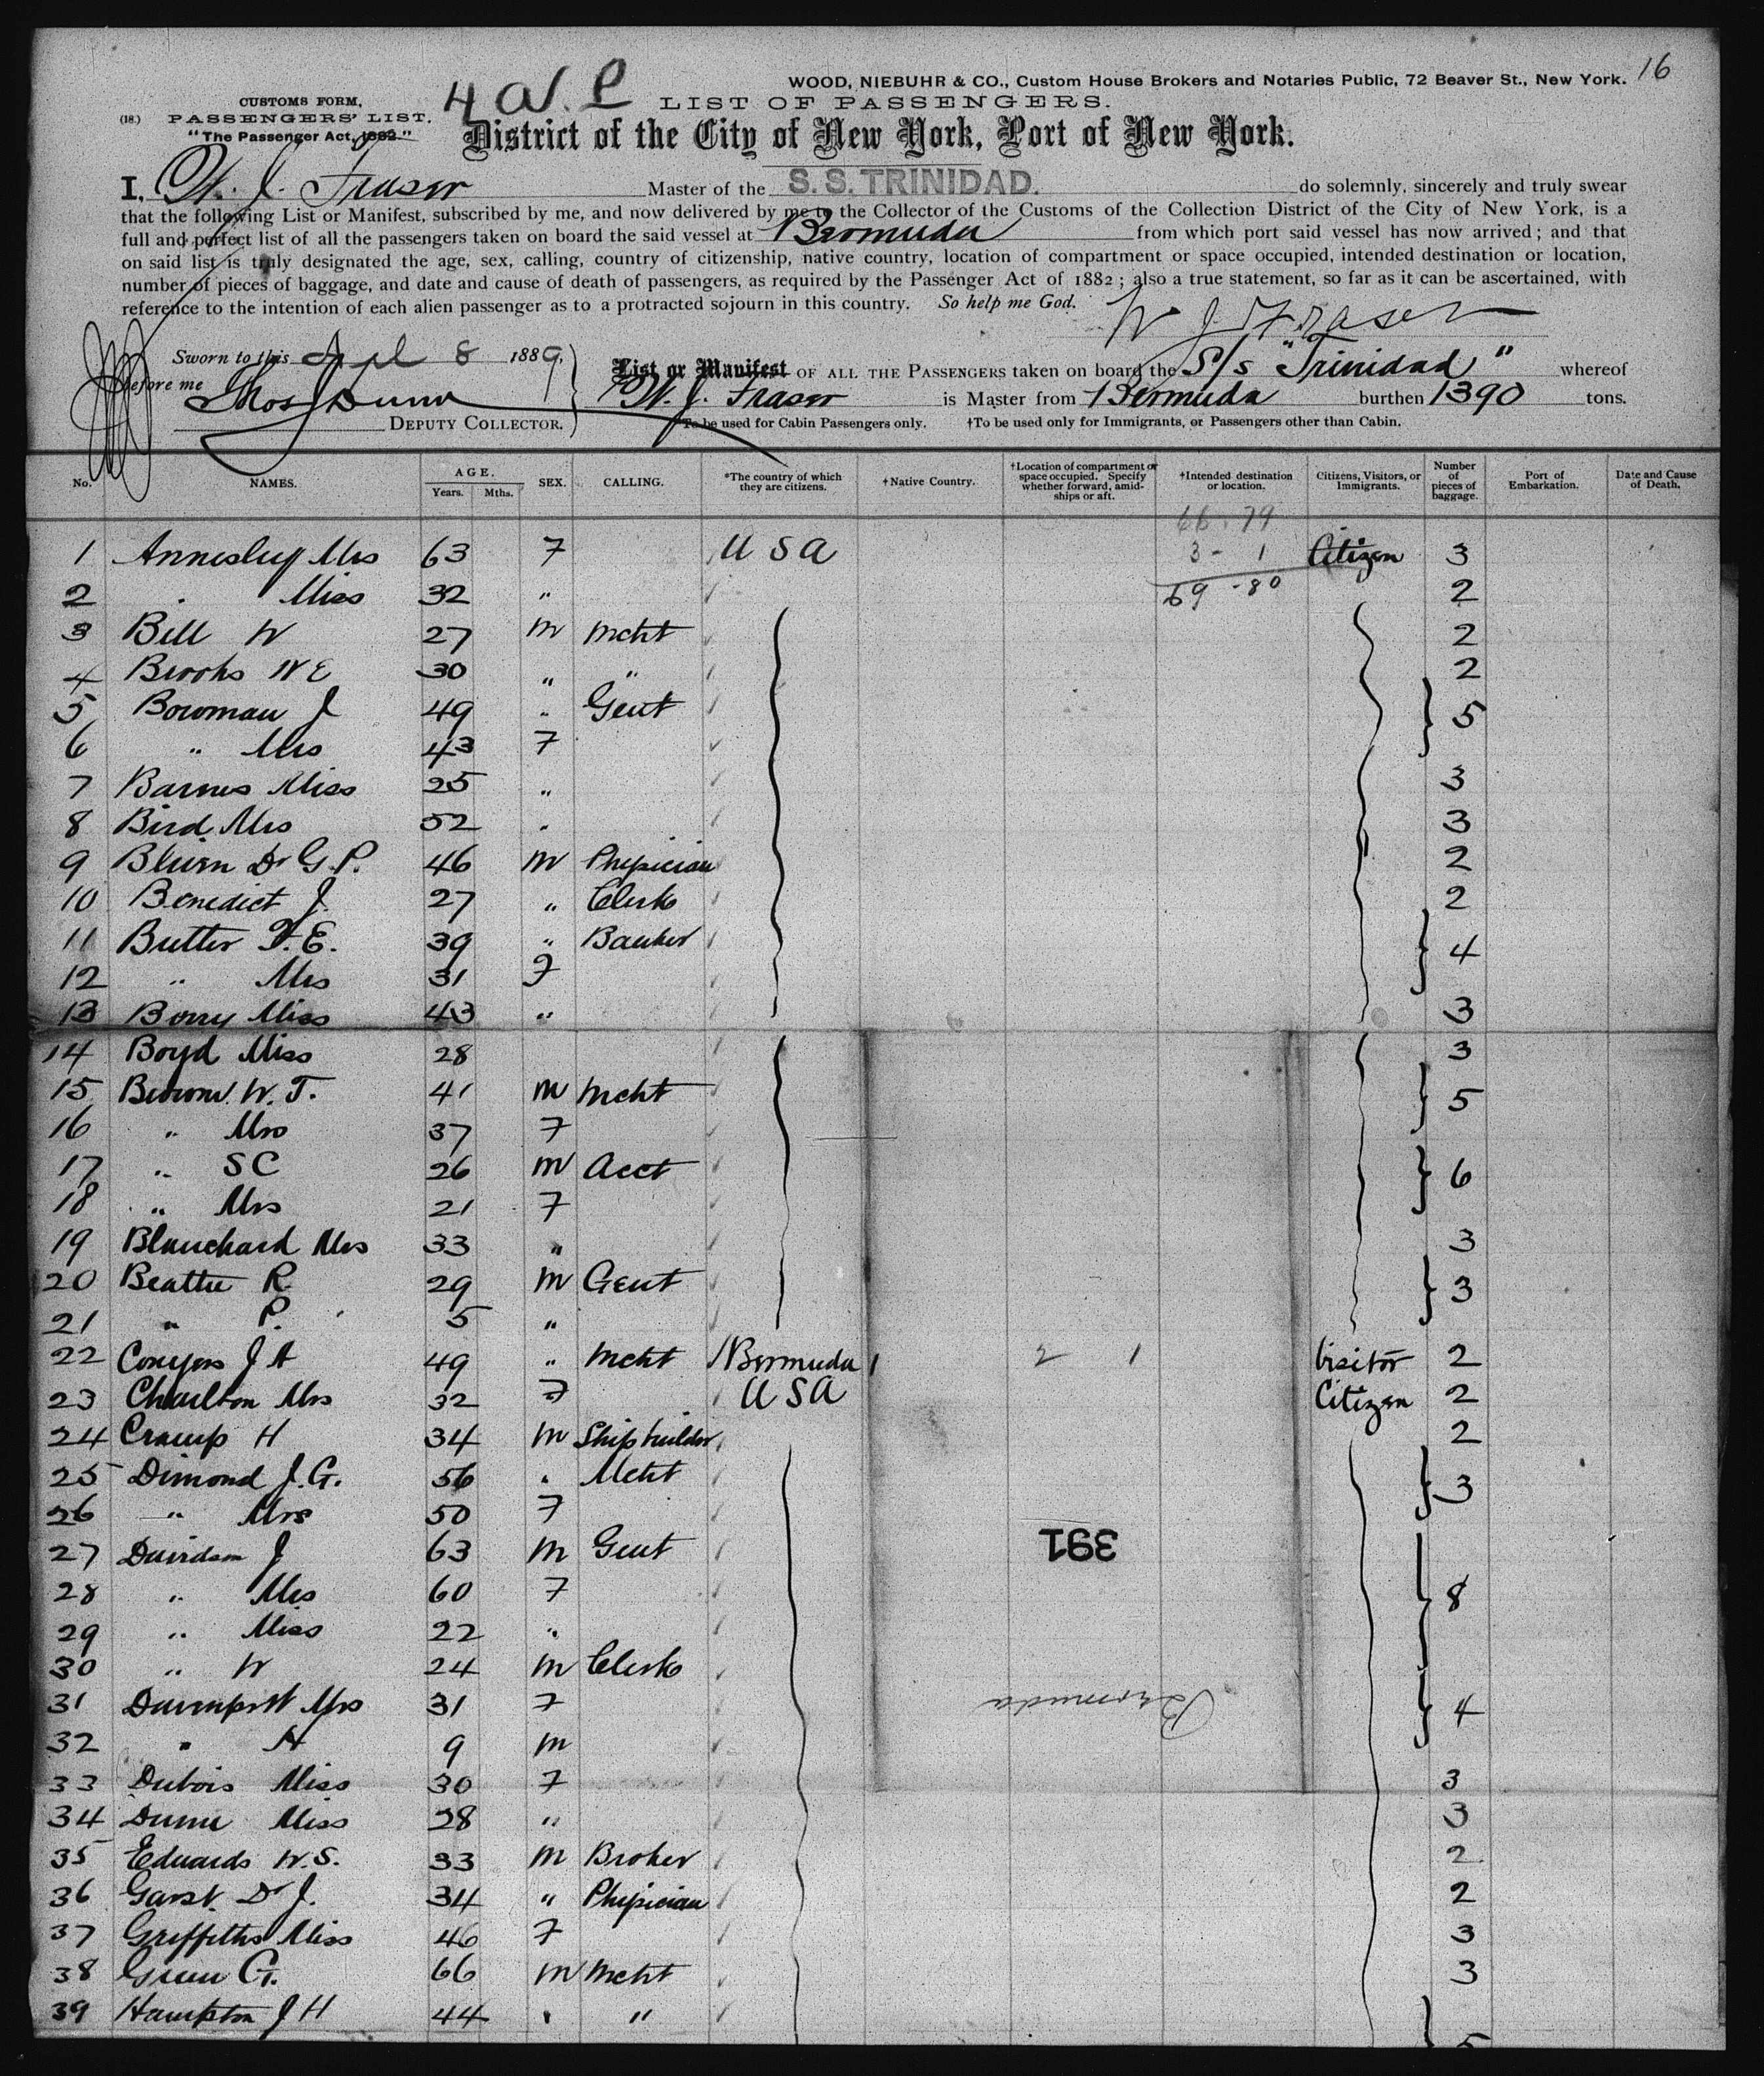 16
4 a. P
WOOD, NIEBUHR & CO., Custom House Brokers and Notaries Public, 72 Beaver St., New York.
CUSTOMS FORM,
(18.) PASSENGERS' LIST.
"The Passenger Act, 1882."
LIST OF PASSENGERS.
District of the City of New York, Port of New York.
I, W. J. Fraser Master of the S. S. TRINIDAD. do solemnly, sincerely and truly swear
that the following List or Manifest, subscribed by me, and now delivered by me to the Collector of the Customs of the Collection District of the City of New York, is a
full and perfect list of all the passengers taken on board the said vessel at Bermuda from which port said vessel has now arrived; and that
on said list is truly designated the age, sex, calling, country of citizenship, native country, location of compartment or space occupied, intended destination or location,
number of pieces of baggage, and date and cause of death of passengers, as required by the Passenger Act of 1882; also a true statement, so far as it can be ascertained, with
reference to the intention of each alien passenger as to a protracted sojourn in this country. So help me God.
W J Fraser
Sworn to this April 8 1889,
before me Thos J Dunn
DEPUTY COLLECTOR.
List or Manifest OF ALL THE PASSENGERS taken on board the S/s "Trinidad" whereof
W. J. Fraser is Master from Bermuda burthen 1390 tons.
*To be used for Cabin Passengers only. †To be used only for Immigrants, or Passengers other than Cabin.
No. NAMES. AGE. Years. Mths. SEX. CALLING. *The country of which they are citizens. †Native Country. †Location of compartment or space occupied. Specify whether forward, amidships or aft. †Intended destination or location. Citizens, Visitors, or Immigrants. Number of pieces of baggage. Port of Embarkation. Date and Cause of Death.
66 - 79
1 Annesley Mrs 63 F U S A 3 - 1 Citizen 3
2 " Miss 32 " 69 - 80 2
3 Bill W 27 M Mcht 2
4 Brooks W E 30 " " 2
5 Bowman J 49 " Gent 5
6 " Mrs 43 F
7 Barnes Miss 25 " 3
8 Bird Mrs 52 " 3
9 Dr G. P. 46 M Physician 2
10 Benedict J. 27 " Clerk 2
11 Butler F. E. 39 " Banker 4
12 " Mrs 31 F
13 Miss 43 " 3
14 Boyd Miss 28 3
15 Brown W. T. 41 M Mcht 5
16 " Mrs 37 F
17 " S C 26 M Acct 6
18 " Mrs 21 F
19 Blanchard Mrs 33 " 3
20 Beattie R 29 M Gent 3
21 " P. 5 "
22 Conyers J A 49 " Mcht Bermuda 2 1 Visitor 2
23 Charlton Mrs 32 F U S A Citizen 2
24 Cramp H 34 M Shipbuilder 2
25 Dimond J. G. 56 " Mcht 3
26 " Mrs 50 F
27 Davidson J 63 M Gent 8
391
28 " Mrs 60 F
29 " Miss 22 "
30 " W 24 M Clerk
31 Davenport Mrs 31 F 4
Bermuda
32 " A 9 M
33 Dubois Miss 30 F 3
34 Dunn Miss 28 " 3
35 Edwards W. S. 33 M Broker 2
36 Garst Dr J. 34 " Physician 2
37 Griffiths Miss 46 F 3
38 Green G. 66 M Mcht 3
39 Hampton J H 44 " " 5